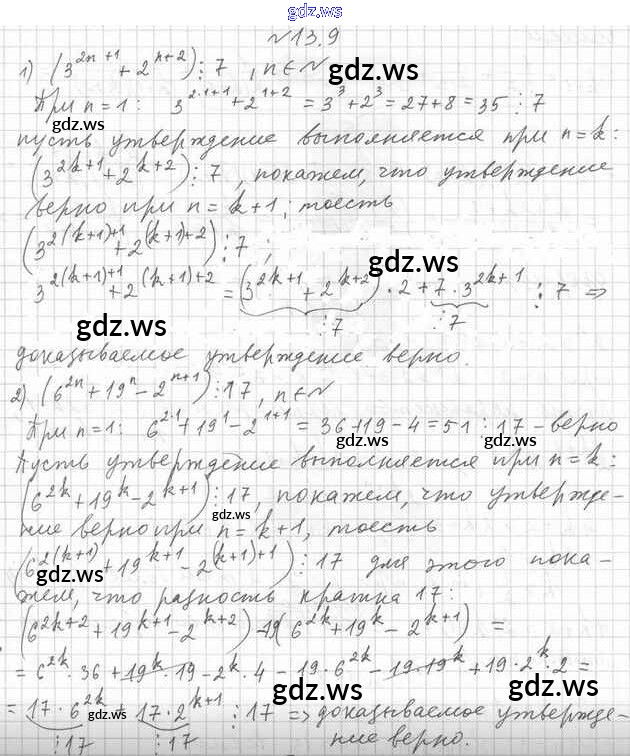 gdz.ws
№ 13.9
1) (3^{2n+1} + 2^{n+2}) ⋮ 7, n ∈ N
gdz.ws
При n = 1: 3^{2·1+1} + 2^{1+2} = 3^3 + 2^3 = 27 + 8 = 35 ⋮ 7
gdz.ws
пусть утверждение выполняется при n = k:
(3^{2k+1} + 2^{k+2}) ⋮ 7, покажем, что утверждение
верно при n = k+1, тоесть
(3^{2(k+1)+1} + 2^{(k+1)+2}) ⋮ 7;
gdz.ws
3^{2(k+1)+1} + 2^{(k+1)+2} = (3^{2k+1} + 2^{k+2}) · 2 + 7 · 3^{2k+1} ⋮ 7 ⇒
⋮ 7 ⋮ 7
gdz.ws
доказываемое утверждение верно.
2) (6^{2n} + 19^n - 2^{n+1}) ⋮ 17, n ∈ N
При n = 1: 6^{2·1} + 19^1 - 2^{1+1} = 36 + 19 - 4 = 51 ⋮ 17 - верно
gdz.ws gdz.ws
Пусть утверждение выполняется при n = k:
(6^{2k} + 19^k - 2^{k+1}) ⋮ 17, покажем, что утвержде-
gdz.ws
ние верно при n = k+1, тоесть
(6^{2(k+1)} + 19^{k+1} - 2^{(k+1)+1}) ⋮ 17 для этого пока-
gdz.ws
жем, что разность кратна 17:
(6^{2k+2} + 19^{k+1} - 2^{k+2}) - 19(6^{2k} + 19^k - 2^{k+1}) =
= 6^{2k} · 36 + 19^k · 19 - 2^k · 4 - 19 · 6^{2k} - 19 · 19^k + 19 · 2^k · 2 =
gdz.ws gdz.ws
= 17 · 6^{2k} + 17 · 2^{k+1} ⋮ 17 ⇒ доказываемое утвержде-
gdz.ws
⋮ 17 ⋮ 17 ние верно.